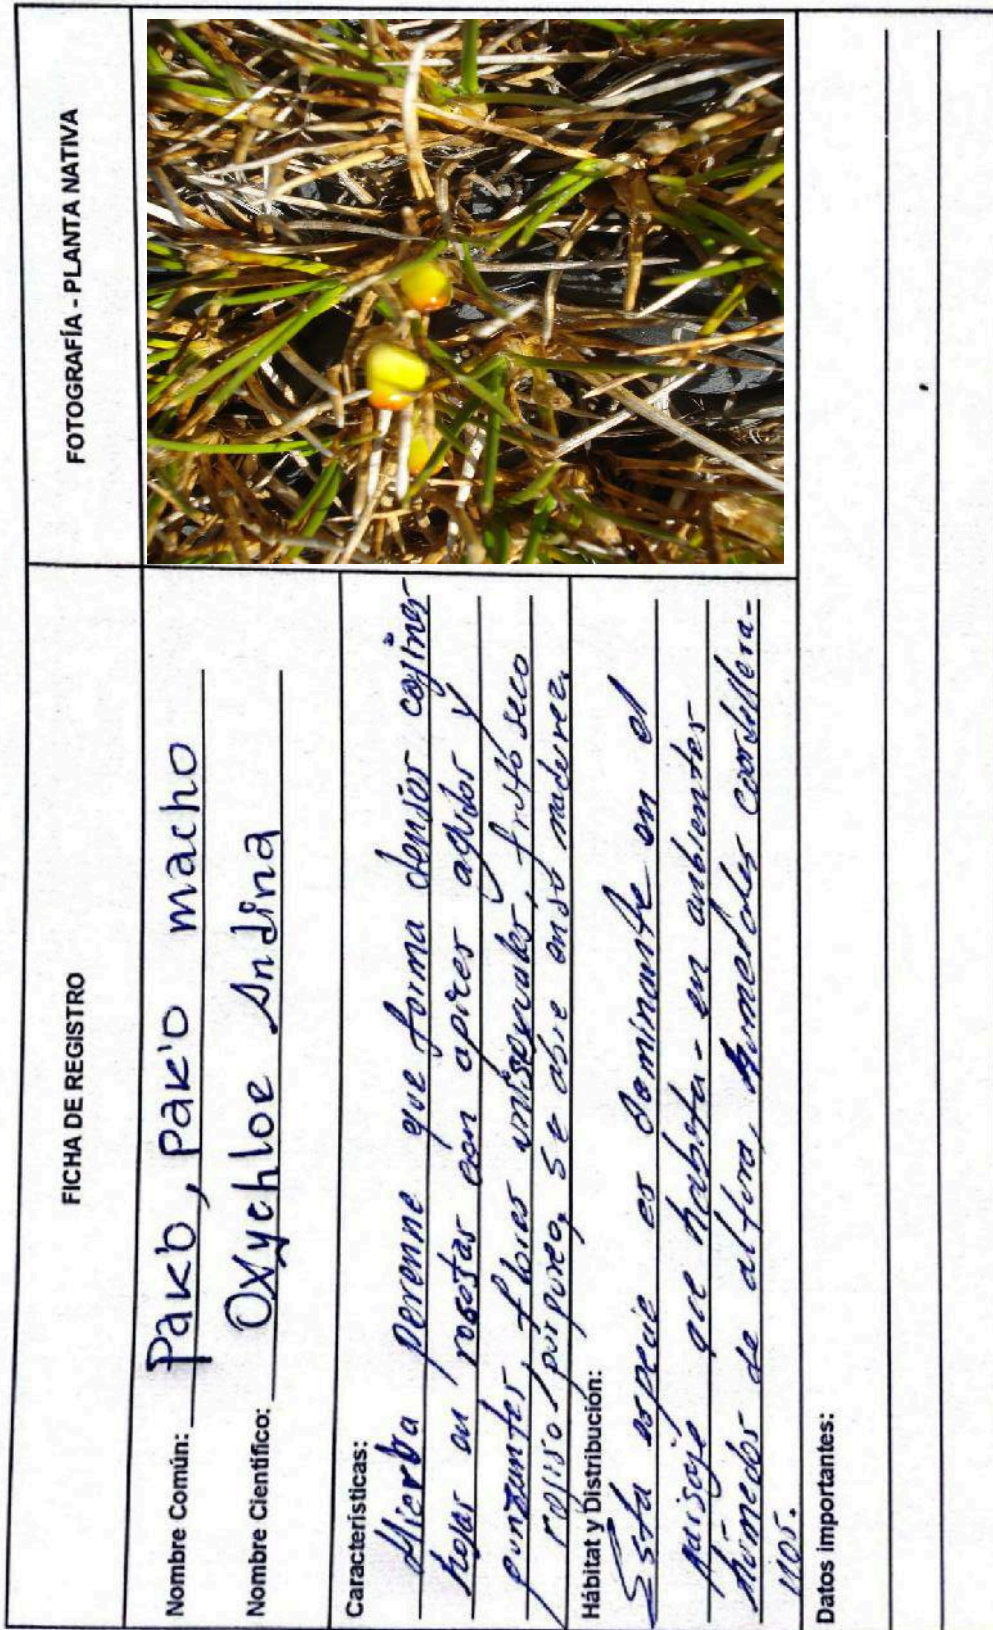 FICHA DE REGISTRO
FOTOGRAFÍA - PLANTA NATIVA
Nombre Común: Pako, Pak'o macho
Nombre Científico: Oxychloe Andina
Características:
Hierba perenne que forma densos cojines
hojas en rosetas con apices agudos y
punzantes, flores unisexuales, fruto seco
rojiso/púrpureo, se abre en su madurez.
Hábitat y Distribución:
Esta especie es dominante en el
paisaje que habita - en ambientes
húmedos de altura, humedales cordillera-
nos.
Datos importantes: